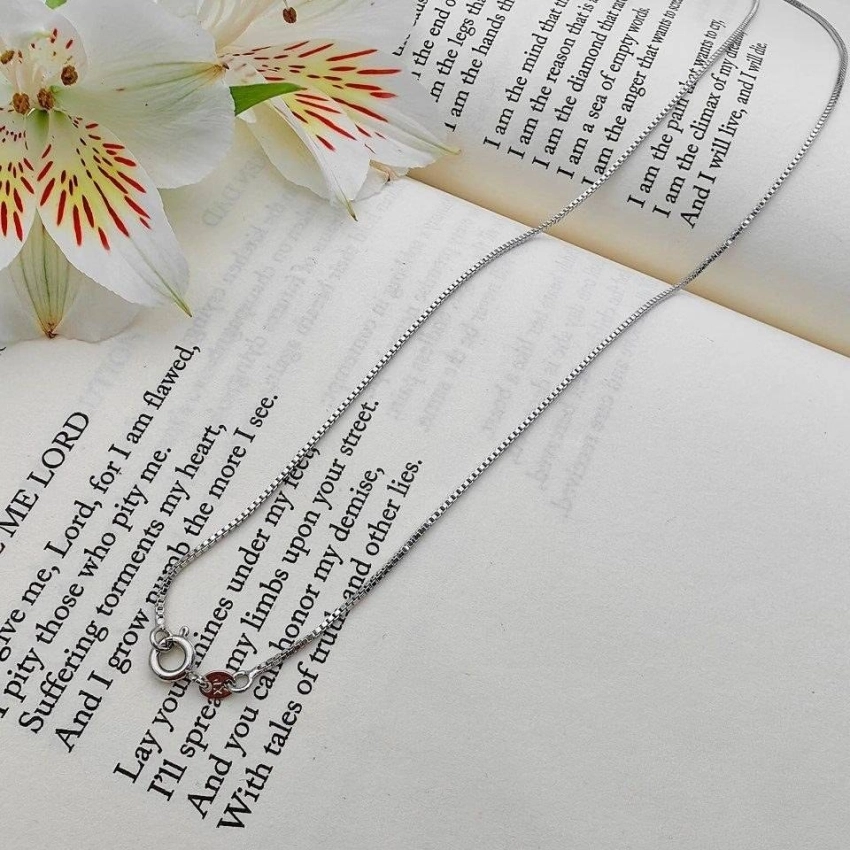 I am the end of
I am the legs th
I am the hands th
I am the mind that th
I am the reason that is a
I am the diamond that rat
I am a sea of empty words.
I am the anger that wants to sc
I am the pain that wants to cry,
I am the climax of my
And I will live, and I will die.
E ME LORD
give me, Lord, for I am flawed,
I pity those who pity me.
Suffering torments my heart,
And I grow numb the more I see.
Lay your mines under my feet,
I'll spread my limbs upon your street.
And you can honor my demise,
With tales of truth and other lies.